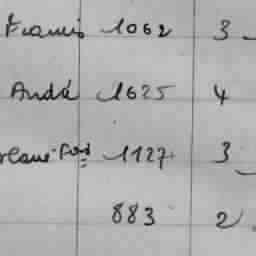 Francis 1062 3
André 1625 4
1127 3
883 2